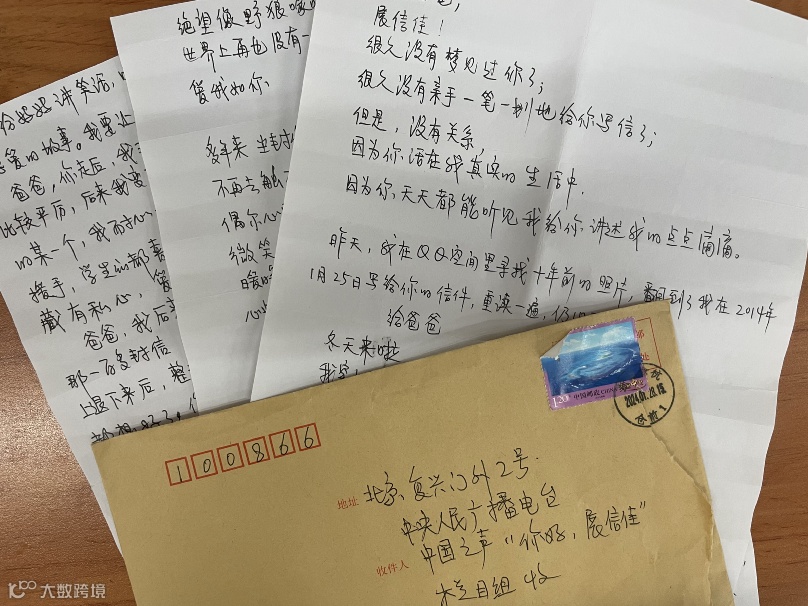 给好好讲笑话,
爱的故事。我要让
爸爸,你走后,我
比较平历,后来我要
的某一个,我而
搔手,学生们都
藏有私心,
爸爸,我后
那一百多封信
上退下来后,整
绝望像野狼嗥
世界上再也没有一
爱我如你
多年来
不再去触
偶尔心
微笑
展信佳!
很久没有梦见过你了;
很久没有亲手一笔一划地给你写信了;
但是,没有关系,
因为你活在我真实的生活中.
因为你,天天都能听见我给你讲述我的点点滴滴。
昨天,我在QQ空间里寻找十年前的照片,翻到了我在2014年
1月25日写给你的信件,重读一遍,仍
给爸爸
冬天来啦
1.20
中国邮政
2024.01.23.18
100866
地址 北京,复兴门外2号.
中央人民广播电台
中国之声“你好,展信佳”
收件人 栏目组 收
大数跨境